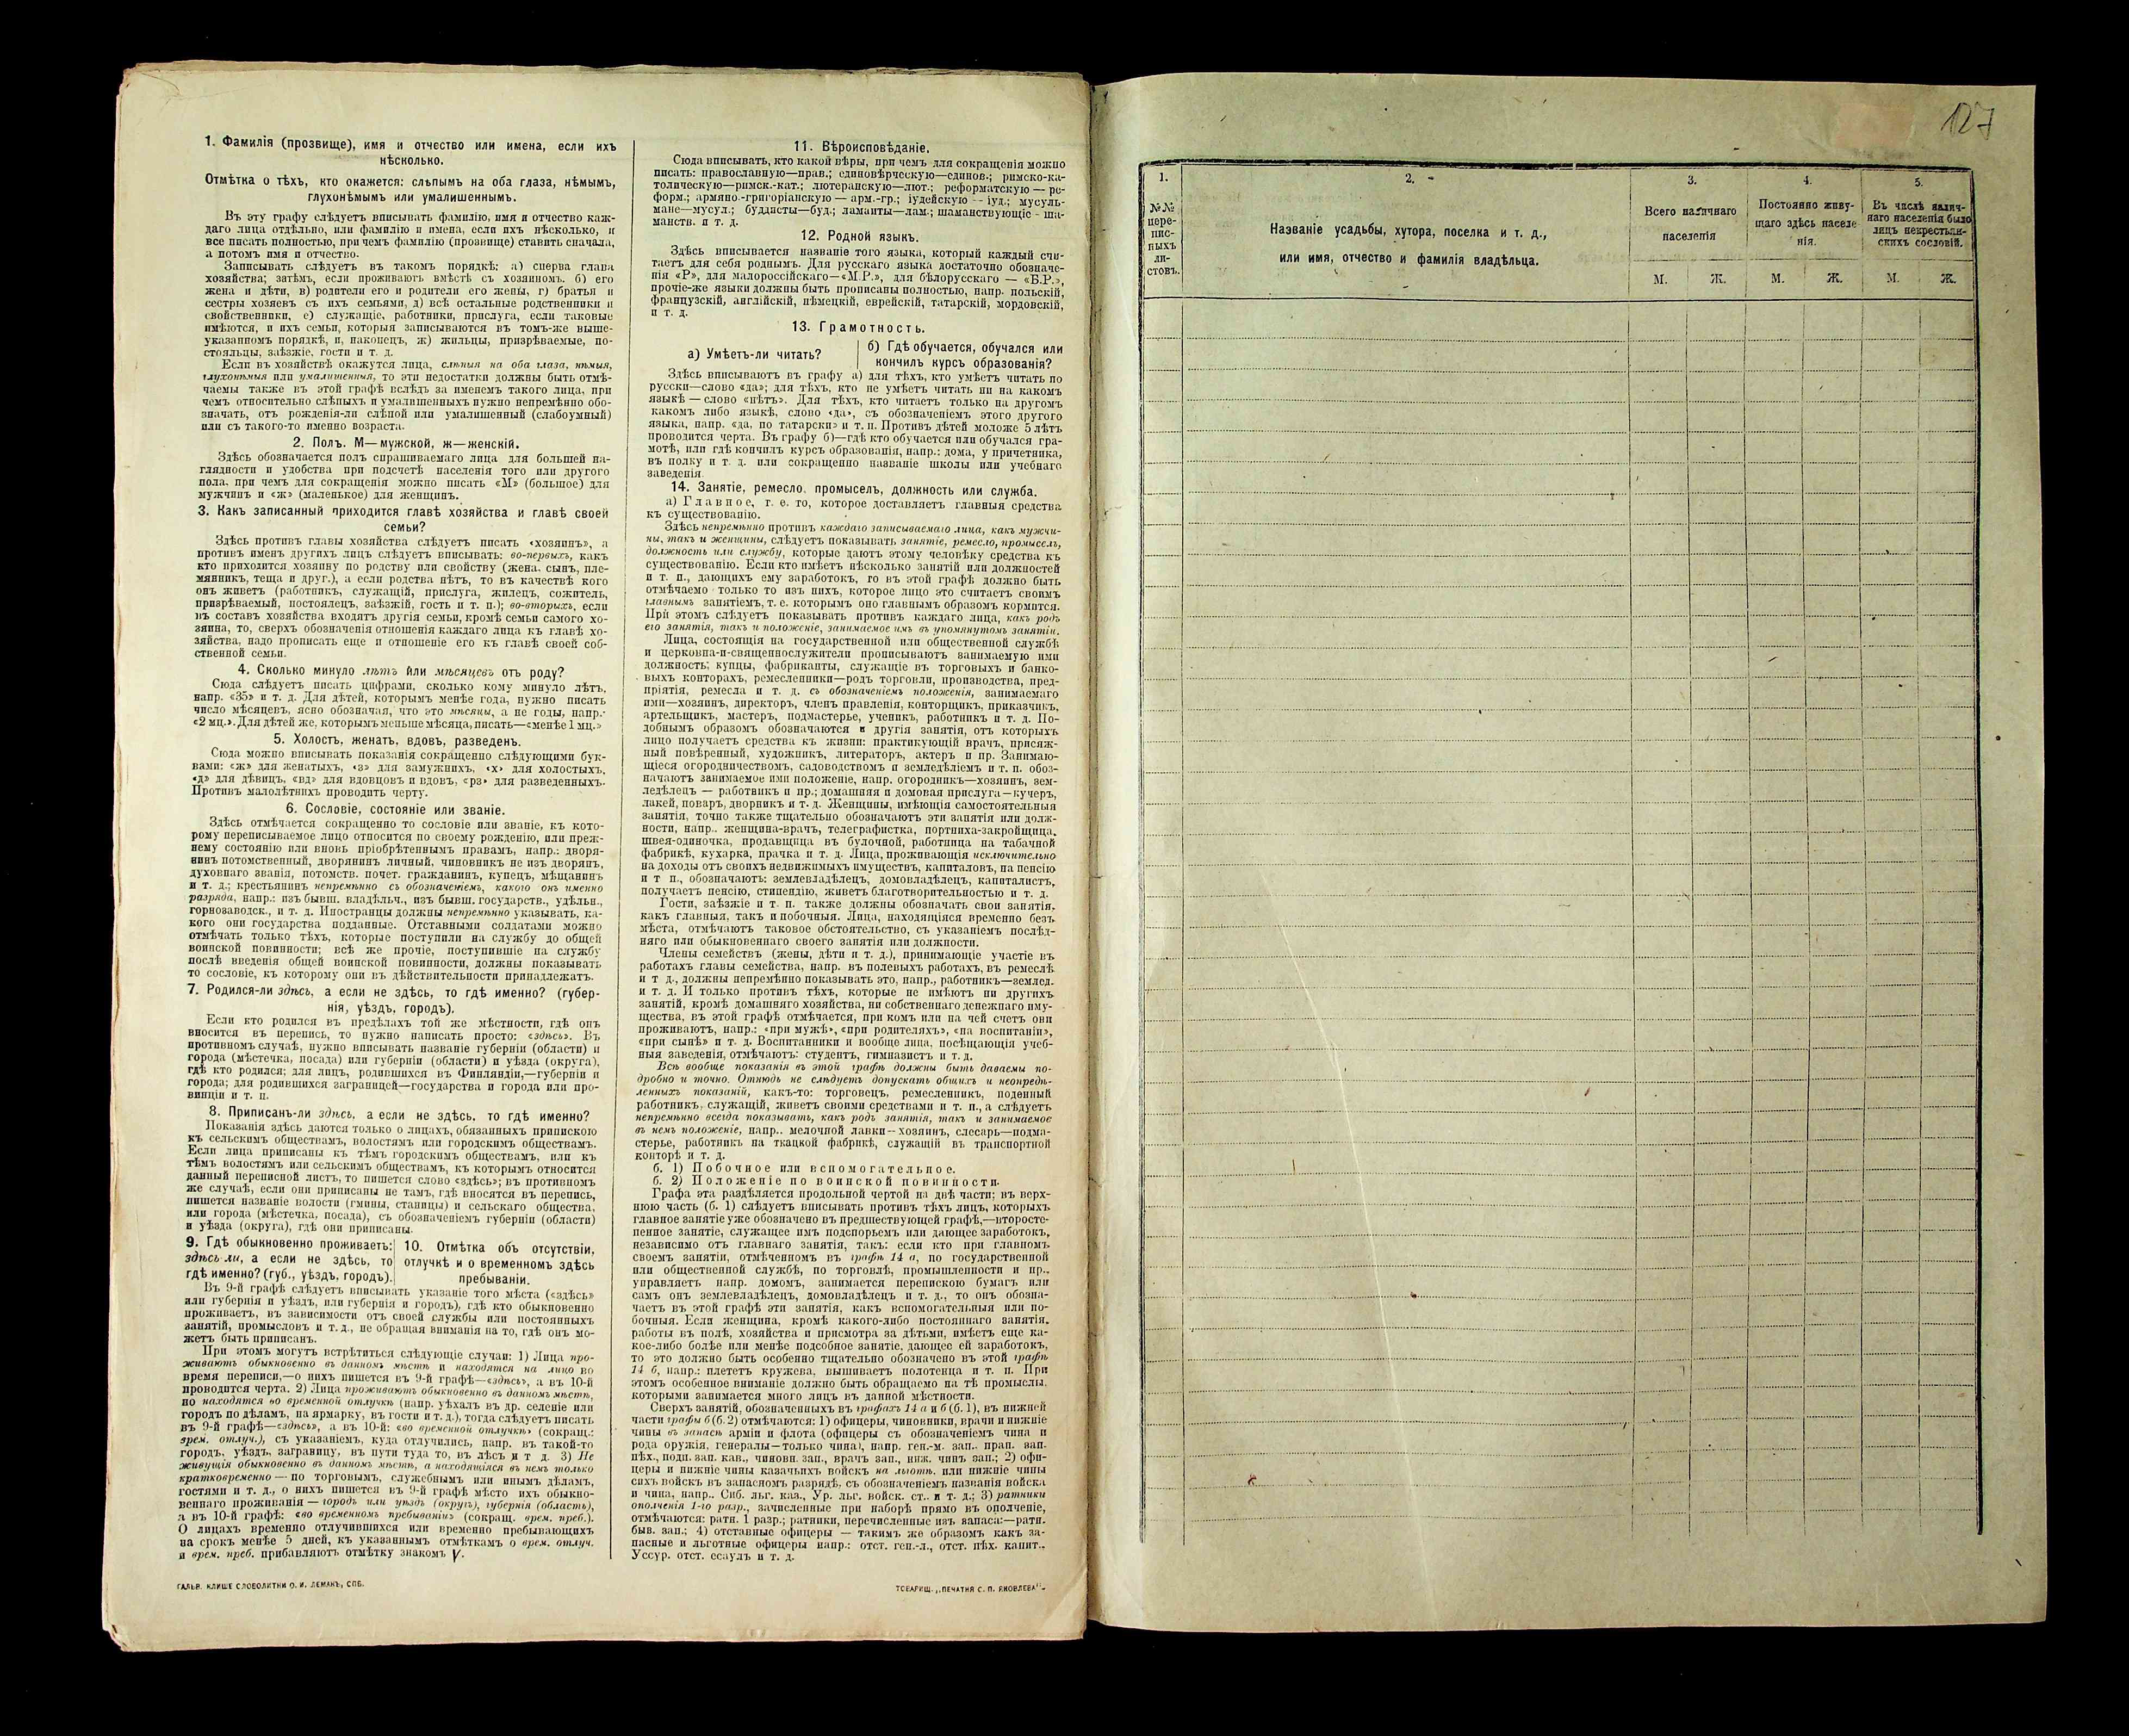 1. Фамилія (прозвище), имя и отчество или имена, если ихъ
нѣсколько.
Отмѣтка о тѣхъ, кто окажется: слѣпымъ на оба глаза, нѣмымъ,
глухонѣмымъ или умалишеннымъ.
Въ эту графу слѣдуетъ вписывать фамилію, имя и отчество каж-
даго лица отдѣльно, или фамилію и имена, если ихъ нѣсколько, и
все писать полностью, при чемъ фамилію (прозвище) ставить сначала,
а потомъ имя и отчество.
Записывать слѣдуетъ въ такомъ порядкѣ: а) сперва глава
хозяйства; затѣмъ, если проживаютъ вмѣстѣ съ хозяиномъ. б) его
жена и дѣти, в) родители его и родители его жены, г) братья и
сестры хозяевъ съ ихъ семьями, д) всѣ остальные родственники и
свойственники, е) служащіе, работники, прислуга, если таковые
имѣются, и ихъ семьи, которыя записываются въ томъ-же выше-
указанномъ порядкѣ, и, наконецъ, ж) жильцы, призрѣваемые, по-
стояльцы, заѣзжіе, гости и т. д.
Если въ хозяйствѣ окажутся лица, слѣпыя на оба глаза, нѣмыя,
глухонѣмыя или умалишенныя, то эти недостатки должны быть отмѣ-
чаемы также въ этой графѣ вслѣдъ за именемъ такого лица, при
чемъ относительно слѣпыхъ и умалишенныхъ нужно непремѣнно обо-
значать, отъ рожденія-ли слѣпой или умалишенный (слабоумный)
или съ такого-то именно возраста.
2. Полъ. М—мужской, ж—женскій.
Здѣсь обозначается полъ спрашиваемаго лица для большей на-
глядности и удобства при подсчетѣ населенія того или другого
пола, при чемъ для сокращенія можно писать «М» (большое) для
мужчинъ и «ж» (маленькое) для женщинъ.
3. Какъ записанный приходится главѣ хозяйства и главѣ своей
семьи?
Здѣсь противъ главы хозяйства слѣдуетъ писать «хозяинъ», а
противъ именъ другихъ лицъ слѣдуетъ вписывать: во-первыхъ, какъ
кто приходится хозяину по родству или свойству (жена, сынъ, пле-
мянникъ, теща и друг.), а если родства нѣтъ, то въ качествѣ кого
онъ живетъ (работникъ, служащій, прислуга, жилецъ, сожитель,
призрѣваемый, постоялецъ, заѣзжій, гость и т. п.); во-вторыхъ, если
въ составъ хозяйства входятъ другія семьи, кромѣ семьи самого хо-
зяина, то, сверхъ обозначенія отношенія каждаго лица къ главѣ хо-
зяйства, надо прописать еще и отношеніе его къ главѣ своей соб-
ственной семьи.
4. Сколько минуло лѣтъ или мѣсяцевъ отъ роду?
Сюда слѣдуетъ писать цифрами, сколько кому минуло лѣтъ,
напр. «35» и т. д. Для дѣтей, которымъ менѣе года, нужно писать
число мѣсяцевъ, ясно обозначая, что это мѣсяцы, а не годы, напр.-
«2 мц.». Для дѣтей же, которымъ меньше мѣсяца, писать—«менѣе 1 мц.»
5. Холостъ, женатъ, вдовъ, разведенъ.
Сюда можно вписывать показанія сокращенно слѣдующими бук-
вами: «ж» для женатыхъ, «з» для замужнихъ, «х» для холостыхъ,
«д» для дѣвицъ, «вд» для вдовцовъ и вдовъ, «рз» для разведенныхъ.
Противъ малолѣтнихъ проводить черту.
6. Сословіе, состояніе или званіе.
Здѣсь отмѣчается сокращенно то сословіе или званіе, къ кото-
рому переписываемое лицо относится по своему рожденію, или преж-
нему состоянію или вновь пріобрѣтеннымъ правамъ, напр.: дворя-
нинъ потомственный, дворянинъ личный, чиновникъ не изъ дворянъ,
духовнаго званія, потомств. почет. гражданинъ, купецъ, мѣщанинъ
и т. д.; крестьянинъ непремѣнно съ обозначеніемъ, какого онъ именно
разряда, напр.: изъ бывш. владѣльч., изъ бывш. государств., удѣльн.,
горнозаводск., и т. д. Иностранцы должны непремѣнно указывать, ка-
кого они государства подданные. Отставными солдатами можно
отмѣчать только тѣхъ, которые поступили на службу до общей
воинской повинности; всѣ же прочіе, поступившіе на службу
послѣ введенія общей воинской повинности, должны показывать
то сословіе, къ которому они въ дѣйствительности принадлежатъ.
7. Родился-ли здѣсь, а если не здѣсь, то гдѣ именно? (губер-
нія, уѣздъ, городъ).
Если кто родился въ предѣлахъ той же мѣстности, гдѣ онъ
вносится въ перепись, то нужно написать просто: «здѣсь». Въ
противномъ случаѣ, нужно вписывать названіе губерніи (области) и
города (мѣстечка, посада) или губерніи (области) и уѣзда (округа),
гдѣ кто родился; для лицъ, родившихся въ Финляндіи,—губерніи и
города; для родившихся заграницей—государства и города или про-
винціи и т. п.
8. Приписанъ-ли здѣсь, а если не здѣсь. то гдѣ именно?
Показанія здѣсь даются только о лицахъ, обязанныхъ припискою
къ сельскимъ обществамъ, волостямъ или городскимъ обществамъ.
Если лица приписаны къ тѣмъ городскимъ обществамъ, или къ
тѣмъ волостямъ или сельскимъ обществамъ, къ которымъ относится
данный переписной листъ, то пишется слово «здѣсь»; въ противномъ
же случаѣ, если они приписаны не тамъ, гдѣ вносятся въ перепись,
пишется названіе волости (гмины, станицы) и сельскаго общества,
или города (мѣстечка, посада), съ обозначеніемъ губерніи (области)
и уѣзда (округа), гдѣ они приписаны.
9. Гдѣ обыкновенно проживаетъ:
здѣсь ли, а если не здѣсь, то
гдѣ именно? (губ., уѣздъ, городъ).
10. Отмѣтка объ отсутствіи,
отлучкѣ и о временномъ здѣсь
пребываніи.
Въ 9-й графѣ слѣдуетъ вписывать указаніе того мѣста («здѣсь»
или губернія и уѣздъ, или губернія и городъ), гдѣ кто обыкновенно
проживаетъ, въ зависимости отъ своей службы или постоянныхъ
занятій, промысловъ и т. д., не обращая вниманія на то, гдѣ онъ мо-
жетъ быть приписанъ.
При этомъ могутъ встрѣтиться слѣдующіе случаи: 1) Лица про-
живаютъ обыкновенно въ данномъ мѣстѣ и находятся на лицо во
время переписи,—о нихъ пишется въ 9-й графѣ—«здѣсь», а въ 10-й
проводится черта. 2) Лица проживаютъ обыкновенно въ данномъ мѣстѣ,
но находятся во временной отлучкѣ (напр. уѣхалъ въ др. селеніе или
городъ по дѣламъ, на ярмарку, въ гости и т. д.), тогда слѣдуетъ писать
въ 9-й графѣ—«здѣсь», а въ 10-й: «во временной отлучкѣ» (сокращ.:
врем. отлуч.), съ указаніемъ, куда отлучились, напр. въ такой-то
городъ, уѣздъ, заграницу, въ пути туда то, въ лѣсъ и т д. 3) Не
живущія обыкновенно въ данномъ мѣстѣ, а находящіяся въ немъ только
кратковременно — по торговымъ, служебнымъ или инымъ дѣламъ,
гостями и т. д., о нихъ пишется въ 9-й графѣ мѣсто ихъ обыкно-
веннаго проживанія — городъ или уѣздъ (округъ), губернія (область),
а въ 10-й графѣ: «во временномъ пребываніи» (сокращ. врем. преб.).
О лицахъ временно отлучившихся или временно пребывающихъ
на срокъ менѣе 5 дней, къ указаннымъ отмѣткамъ о врем. отлуч.
и врем. преб. прибавляютъ отмѣтку знакомъ V.
ГАЛЬВ. КЛИШЕ СЛОВОЛИТНИ О. И. ЛЕМАНЪ, СПБ.
11. Вѣроисповѣданіе.
Сюда вписывать, кто какой вѣры, при чемъ для сокращенія можно
писать: православную—прав.; единовѣрческую—единов.; римско-ка-
толическую—римск.-кат.; лютеранскую—лют.; реформатскую — ре-
форм.; армяно.-григоріанскую — арм.-гр.; іудейскую — іуд.; мусуль-
мане—мусул.; буддисты—буд.; ламаиты—лам.; шаманствующіе - ша-
манств. и т. д.
12. Родной языкъ.
Здѣсь вписывается названіе того языка, который каждый счи-
таетъ для себя роднымъ. Для русскаго языка достаточно обозначе-
нія «Р», для малороссійскаго—«М.Р.», для бѣлорусскаго — «Б.Р.»,
прочіе-же языки должны быть прописаны полностью, напр. польскій,
французскій, англійскій, нѣмецкій, еврейскій, татарскій, мордовскій,
и т. д.
13. Грамотность.
а) Умѣетъ-ли читать?
б) Гдѣ обучается, обучался или
кончилъ курсъ образованія?
Здѣсь вписываютъ въ графу а) для тѣхъ, кто умѣетъ читать по
русски—слово «да»; для тѣхъ, кто не умѣетъ читать ни на какомъ
языкѣ — слово «нѣтъ». Для тѣхъ, кто читаетъ только на другомъ
какомъ либо языкѣ, слово «да», съ обозначеніемъ этого другого
языка, напр. «да, по татарски» и т. п. Противъ дѣтей моложе 5 лѣтъ
проводится черта. Въ графу б)—гдѣ кто обучается или обучался гра-
мотѣ, или гдѣ кончилъ курсъ образованія, напр.: дома, у причетника,
въ полку и т. д. или сокращенно названіе школы или учебнаго
заведенія.
14. Занятіе, ремесло, промыселъ, должность или служба.
а) Главное, т. е. то, которое доставляетъ главныя средства
къ существованію.
Здѣсь непремѣнно противъ каждаго записываемаго лица, какъ мужчи-
ны, такъ и женщины, слѣдуетъ показывать занятіе, ремесло, промыселъ,
должность или службу, которые даютъ этому человѣку средства къ
существованію. Если кто имѣетъ нѣсколько занятій или должностей
и т. п., дающихъ ему заработокъ, то въ этой графѣ должно быть
отмѣчаемо только то изъ нихъ, которое лицо это считаетъ своимъ
главнымъ занятіемъ, т. е. которымъ оно главнымъ образомъ кормится.
При этомъ слѣдуетъ показывать противъ каждаго лица, какъ родъ
его занятія, такъ и положеніе, занимаемое имъ въ упомянутомъ занятіи.
Лица, состоящія на государственной или общественной службѣ
и церковна-и-священнослужители прописываютъ занимаемую ими
должность; купцы, фабриканты, служащіе въ торговыхъ и банко-
выхъ конторахъ, ремесленники—родъ торговли, производства, пред-
пріятія, ремесла и т. д. съ обозначеніемъ положенія, занимаемаго
ими—хозяинъ, директоръ, членъ правленія, конторщикъ, приказчикъ,
артельщикъ, мастеръ, подмастерье, ученикъ, работникъ и т. д. По-
добнымъ образомъ обозначаются и другія занятія, отъ которыхъ
лицо получаетъ средства къ жизни: практикующій врачъ, присяж-
ный повѣренный, художникъ, литераторъ, актеръ и пр. Занимаю-
щіеся огородничествомъ, садоводствомъ и земледѣліемъ и т. п. обоз-
начаютъ занимаемое ими положеніе, напр. огородникъ—хозяинъ, зем-
ледѣлецъ — работникъ и пр.; домашняя и домовая прислуга—кучеръ,
лакей, поваръ, дворникъ и т. д. Женщины, имѣющія самостоятельныя
занятія, точно также тщательно обозначаютъ эти занятія или долж-
ности, напр.. женщина-врачъ, телеграфистка, портниха-закройщица,
швея-одиночка, продавщица въ булочной, работница на табачной
фабрикѣ, кухарка, прачка и т. д. Лица, проживающія исключительно
на доходы отъ своихъ недвижимыхъ имуществъ, капиталовъ, на пенсію
и т п., обозначаютъ: землевладѣлецъ, домовладѣлецъ, капиталистъ,
получаетъ пенсію, стипендію, живетъ благотворительностью и т. д.
Гости, заѣзжіе и т. п. также должны обозначать свои занятія,
какъ главныя, такъ и побочныя. Лица, находящіяся временно безъ
мѣста, отмѣчаютъ таковое обстоятельство, съ указаніемъ послѣд-
няго или обыкновеннаго своего занятія или должности.
Члены семействъ (жены, дѣти и т. д.), принимающіе участіе въ
работахъ главы семейства, напр. въ полевыхъ работахъ, въ ремеслѣ
и т д., должны непремѣнно показывать это, напр., работникъ—землед.
и т. д. И только противъ тѣхъ, которые не имѣютъ ни другихъ
занятій, кромѣ домашняго хозяйства, ни собственнаго денежнаго иму-
щества, въ этой графѣ отмѣчается, при комъ или на чей счетъ они
проживаютъ, напр.: «при мужѣ», «при родителяхъ», «на воспитаніи»,
«при сынѣ» и т. д. Воспитанники и вообще лица, посѣщающія учеб-
ныя заведенія, отмѣчаютъ: студентъ, гимназистъ и т. д.
Всѣ вообще показанія въ этой графѣ должны быть даваемы по-
дробно и точно. Отнюдь не слѣдуетъ допускать общихъ и неопредѣ-
ленныхъ показаній, какъ-то: торговецъ, ремесленникъ, поденный
работникъ, служащій, живетъ своими средствами и т. п., а слѣдуетъ
непремѣнно всегда показывать, какъ родъ занятія, такъ и занимаемое
въ немъ положеніе, напр.. мелочной лавки — хозяинъ, слесарь—подма-
стерье, работникъ на ткацкой фабрикѣ, служащій въ транспортной
конторѣ и т. д.
б. 1) Побочное или вспомогательное.
б. 2) Положеніе по воинской повинности.
Графа эта раздѣляется продольной чертой на двѣ части; въ верх-
нюю часть (б. 1) слѣдуетъ вписывать противъ тѣхъ лицъ, которыхъ
главное занятіе уже обозначено въ предшествующей графѣ,—второсте-
пенное занятіе, служащее имъ подспорьемъ или дающее заработокъ,
независимо отъ главнаго занятія, такъ: если кто при главномъ
своемъ занятіи, отмѣченномъ въ графѣ 14 а, по государственной
или общественной службѣ, по торговлѣ, промышленности и пр.,
управляетъ напр. домомъ, занимается перепискою бумагъ или
самъ онъ землевладѣлецъ, домовладѣлецъ и т. д., то онъ обозна-
чаетъ въ этой графѣ эти занятія, какъ вспомогательныя или по-
бочныя. Если женщина, кромѣ какого-либо постояннаго занятія,
работы въ полѣ, хозяйства и присмотра за дѣтьми, имѣетъ еще ка-
кое-либо болѣе или менѣе подсобное занятіе, дающее ей заработокъ,
то это должно быть особенно тщательно обозначено въ этой графѣ
14 б, напр.: плететъ кружева, вышиваетъ полотенца и т. п. При
этомъ особенное вниманіе должно быть обращаемо на тѣ промыслы,
которыми занимается много лицъ въ данной мѣстности.
Сверхъ занятій, обозначенныхъ въ графахъ 14 а и б (б. 1), въ нижней
части графы б (б. 2) отмѣчаются: 1) офицеры, чиновники, врачи и нижніе
чины въ запасѣ арміи и флота (офицеры съ обозначеніемъ чина и
рода оружія, генералы—только чина), напр. ген.-м. зап., прап. зап.
пѣх., подп. зап. кав., чиновн. зап., врачъ зап., ниж. чинъ зап.; 2) офи-
церы и нижніе чины казачьихъ войскъ на льготѣ, или нижніе чины
сихъ войскъ въ запасномъ разрядѣ, съ обозначеніемъ названія войска
и чина, напр.. Сиб. льг. каз., Ур. льг. войск. ст.. и т. д.; 3) ратники
ополченія 1-го разр., зачисленные при наборѣ прямо въ ополченіе,
отмѣчаются: ратн. 1 разр.; ратники, перечисленные изъ запаса:—ратн.
быв. зап.; 4) отставные офицеры — такимъ же образомъ какъ за-
пасные и льготные офицеры напр.: отст. ген.-л., отст. пѣх. капит..
Уссур. отст. есаулъ и т. д.
ТОВАРИЩ. „ПЕЧАТНЯ С. П. ЯКОВЛЕВА"
127
1.
№№
пере-
пис-
ныхъ
ли-
стовъ.
2.
Названіе усадьбы, хутора, поселка и т. д.,
или имя, отчество и фамилія владѣльца.
3.
Всего наличнаго
населенія
М. Ж.
4.
Постоянно живу-
щаго здѣсь населе
нія.
М. Ж.
5.
Въ числѣ налич-
наго населенія было
лицъ некрестьян-
скихъ сословій.
М. Ж.